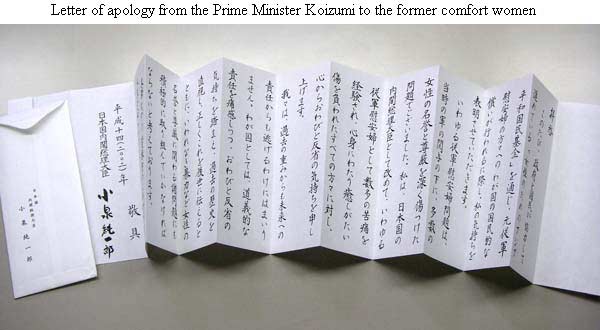 Letter of apology from the Prime Minister Koizumi to the former comfort women
拝啓
このたび、政府と国民が協力して
平和国民基金」を通じ、元従軍
慰安婦の方々へのわが国の国民的な
償いが行われるに際し、私の気持ちを
表明させていただきます。
いわゆる従軍慰安婦問題は、
当時の軍の関与の下に、多数の
女性の名誉と尊厳を深く傷つけた
問題でございました。私は、日本国の
内閣総理大臣として改めて、いわゆる
従軍慰安婦として数多の苦痛を
経験され、心身にわたり癒しがたい
傷を負われたすべての方々に対し、
心からおわびと反省の気持ちを申し
上げます。
我々は、過去の重みからも未来への
責任からも逃げるわけにはまいり
ません。わが国としては、道義的な
責任を痛感しつつ、おわびと反省の
気持ちを踏まえ、過去の歴史を
直視し、正しくこれを後世に伝えると
ともに、いわれなき暴力など女性の
名誉と尊厳に関わる諸問題にも
積極的に取り組んでいかなければ
ならないと考えております。
敬具
平成十四(二〇〇二)年
日本国内閣総理大臣
小泉純一郎
小泉純一郎